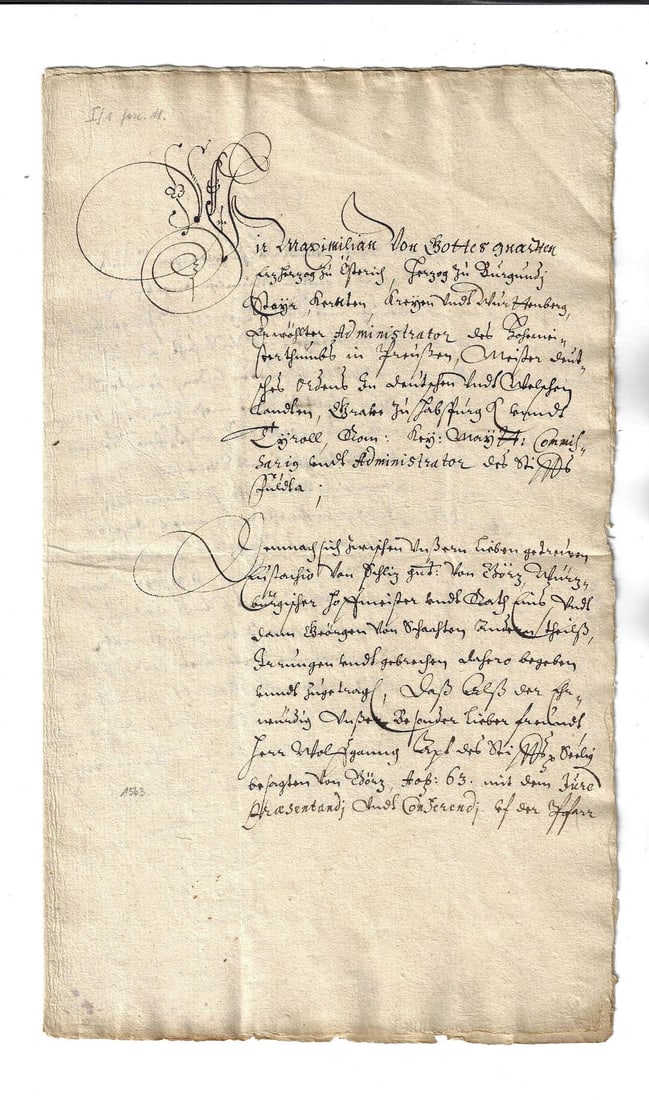 Wir Maximilian Von Gottes gnaden
Ertzherzog zu Österich, Herzog zu Burgundj
Steyr, Kernten, Kreyen undt Wurttenberg,
Erwöhlter Administrator des Hohemei-
sterthumbs in Preußen, Meister deut-
sches Ordens In deutschen undt Welschen
landten, Grave zu Habspurg vnndt
Tyroll, Rom: Key: Maytt: Commis-
sarig vndt Administrator des Stiffts
Fuldta;
Demnach sich zwischen Unßern lieben getreuen
Eustachio von Schlitz gnt: von Görz, Würz-
burgischer Hoffmeister vndt Rath Eins, Vndt
dann Geörgen von Schachten Andern theilß,
Irrungen vndt gebrechen dahero begeben
vnndt zugetrag, Daß Alß der Ehr-
würdig Unßer Besonder lieber freundt
Herr Wolffganng Apt des Stiffts Seelig
besagten von Görz, 63. mit dem Jure
Præsentandj Vndt Conferendj vf der Pfarr
1563